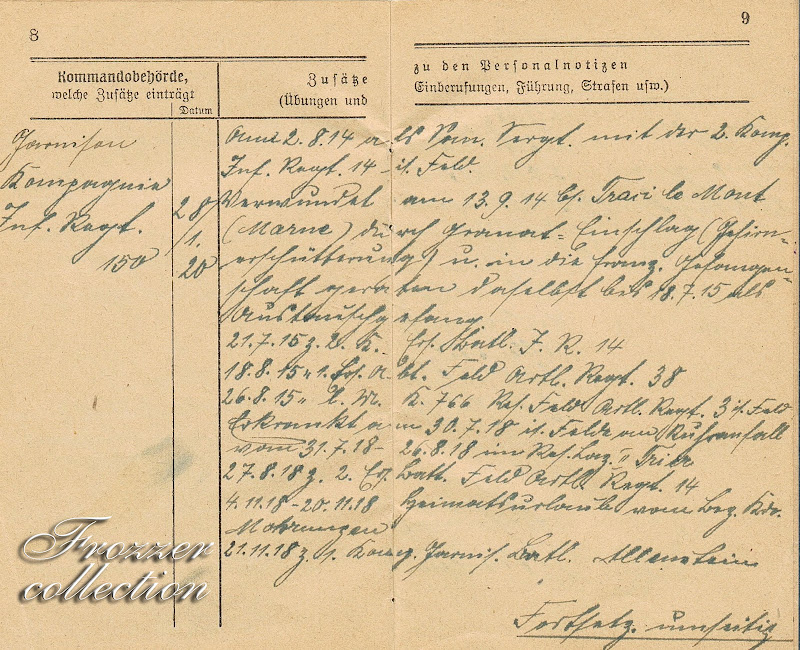 8
9
Kommandobehörde,
welche Zusätze einträgt
Datum
Zusätze
(Übungen und
zu den Personalnotizen
Einberufungen, Führung, Strafen usw.)
Garnison
Kompagnie
Inf. Regt.
150
28/
1.
20
Am 2.8.14 als San. Sergt. mit der 2. Komp.
Inf. Regt. 14 i. Feld.
Verwundet am 13.9.14 bei Traci le Mont
(Marne) durch Granat-Einschlag (Gehirn-
erschütterung) u. in die franz. Gefangen-
schaft geraten daselbst bis 18.7.15 als
Austauschgefang.
21.7.15 z. 2. K. Ers. Batl. J. R. 14
18.8.15 " 1. Ers. Abt. Feld Artl. Regt. 38
26.8.15 " L. M. K. 766 Res. Feld Artl. Regt. 3 i. Feld
Erkrankt am 30.7.18 i. Felde an Ruhranfall
vom 31.7.18 - 26.8.18 im Res. Laz. II Trier
27.8.18 z. 2. Ers. Batt. Feld Artl. Regt. 14
4.11.18 - 20.11.18 Heimatsurlaub vom Bez. Kdo.
Mohrungen
21.11.18 z. 1. Komp. Garnis. Batl. Allenstein
Fortsetz. umseitig
Frozzer
collection